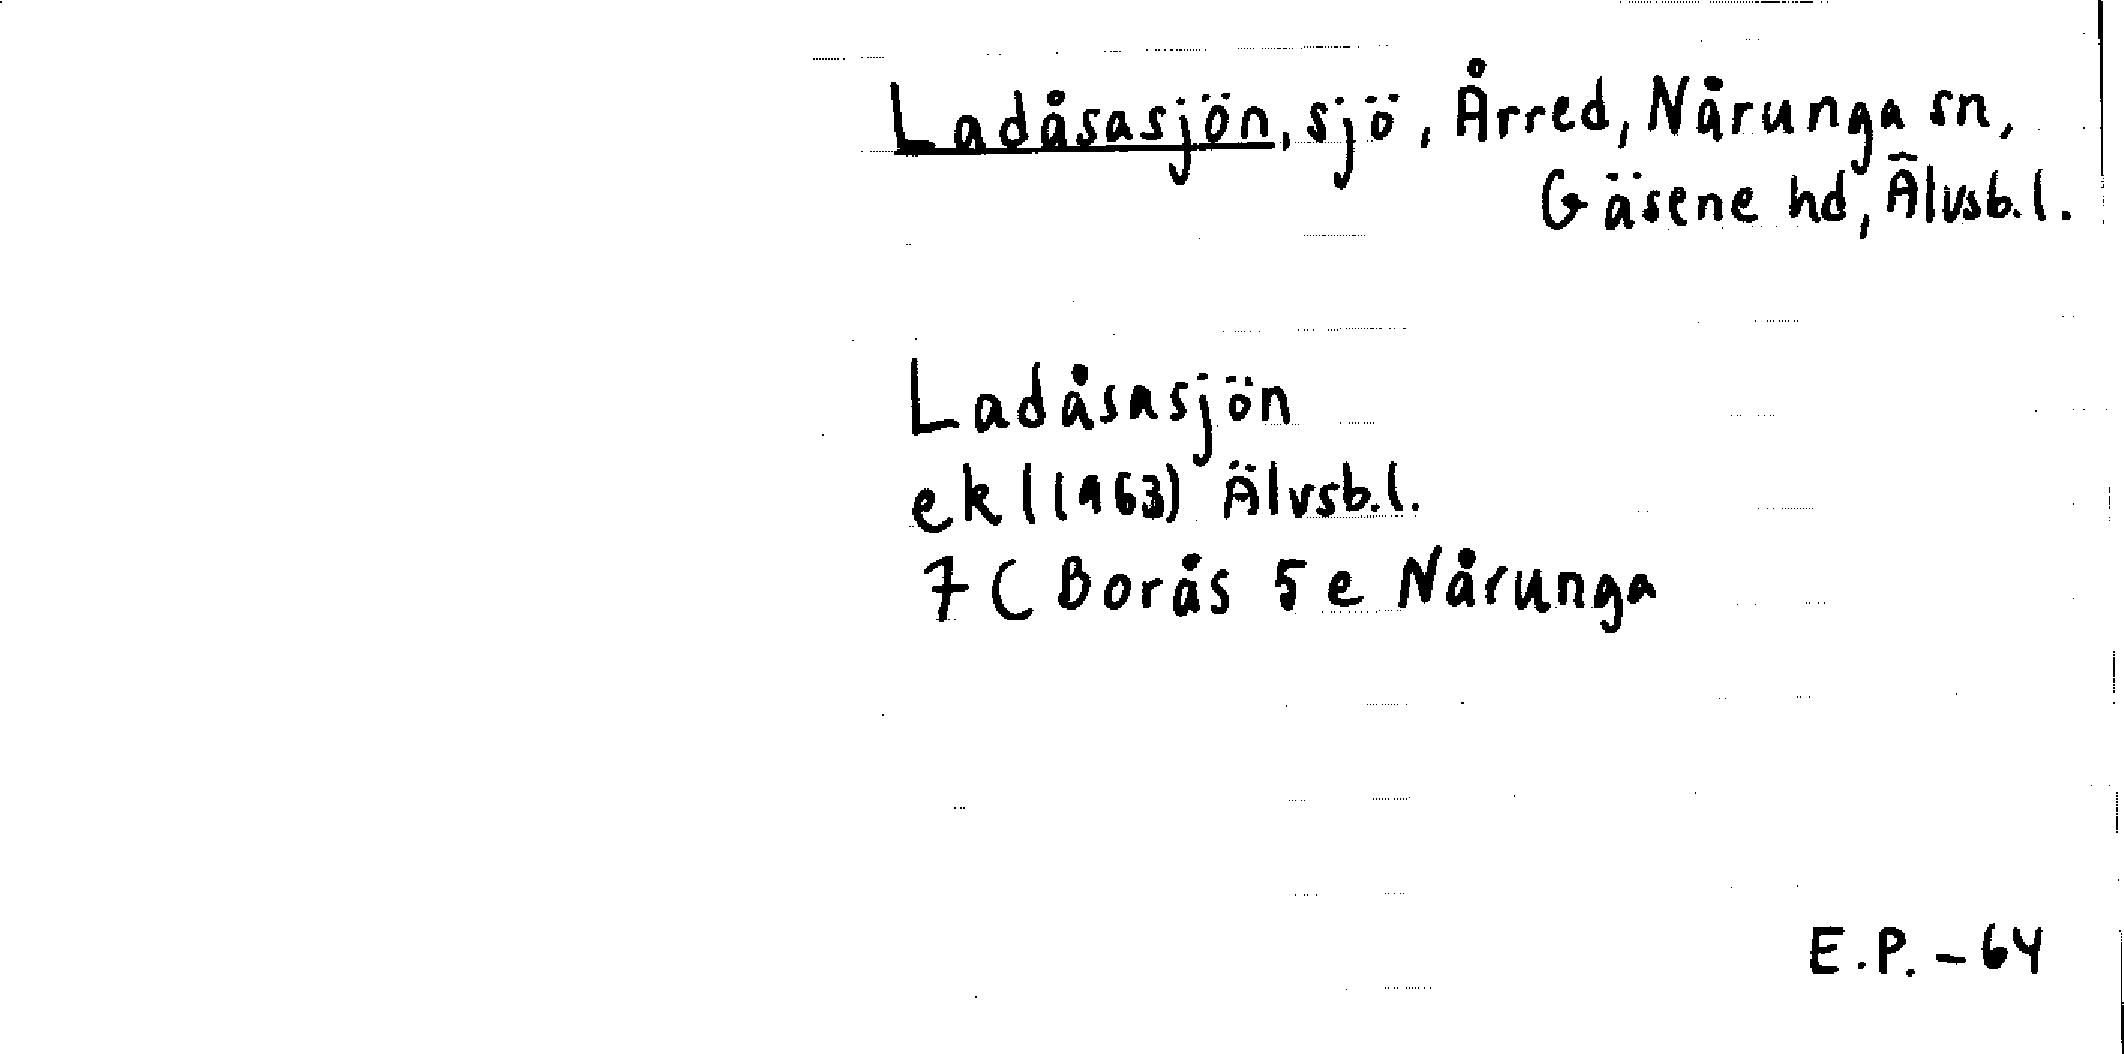 Ladåsasjön, sjö, Årred, Nårunga sn,
Gäsene hd, Älvsb.l.
Ladåsasjön
ekl (1963) Älvsb.l.
7C Borås 5e Nårunga
E.P. - 64